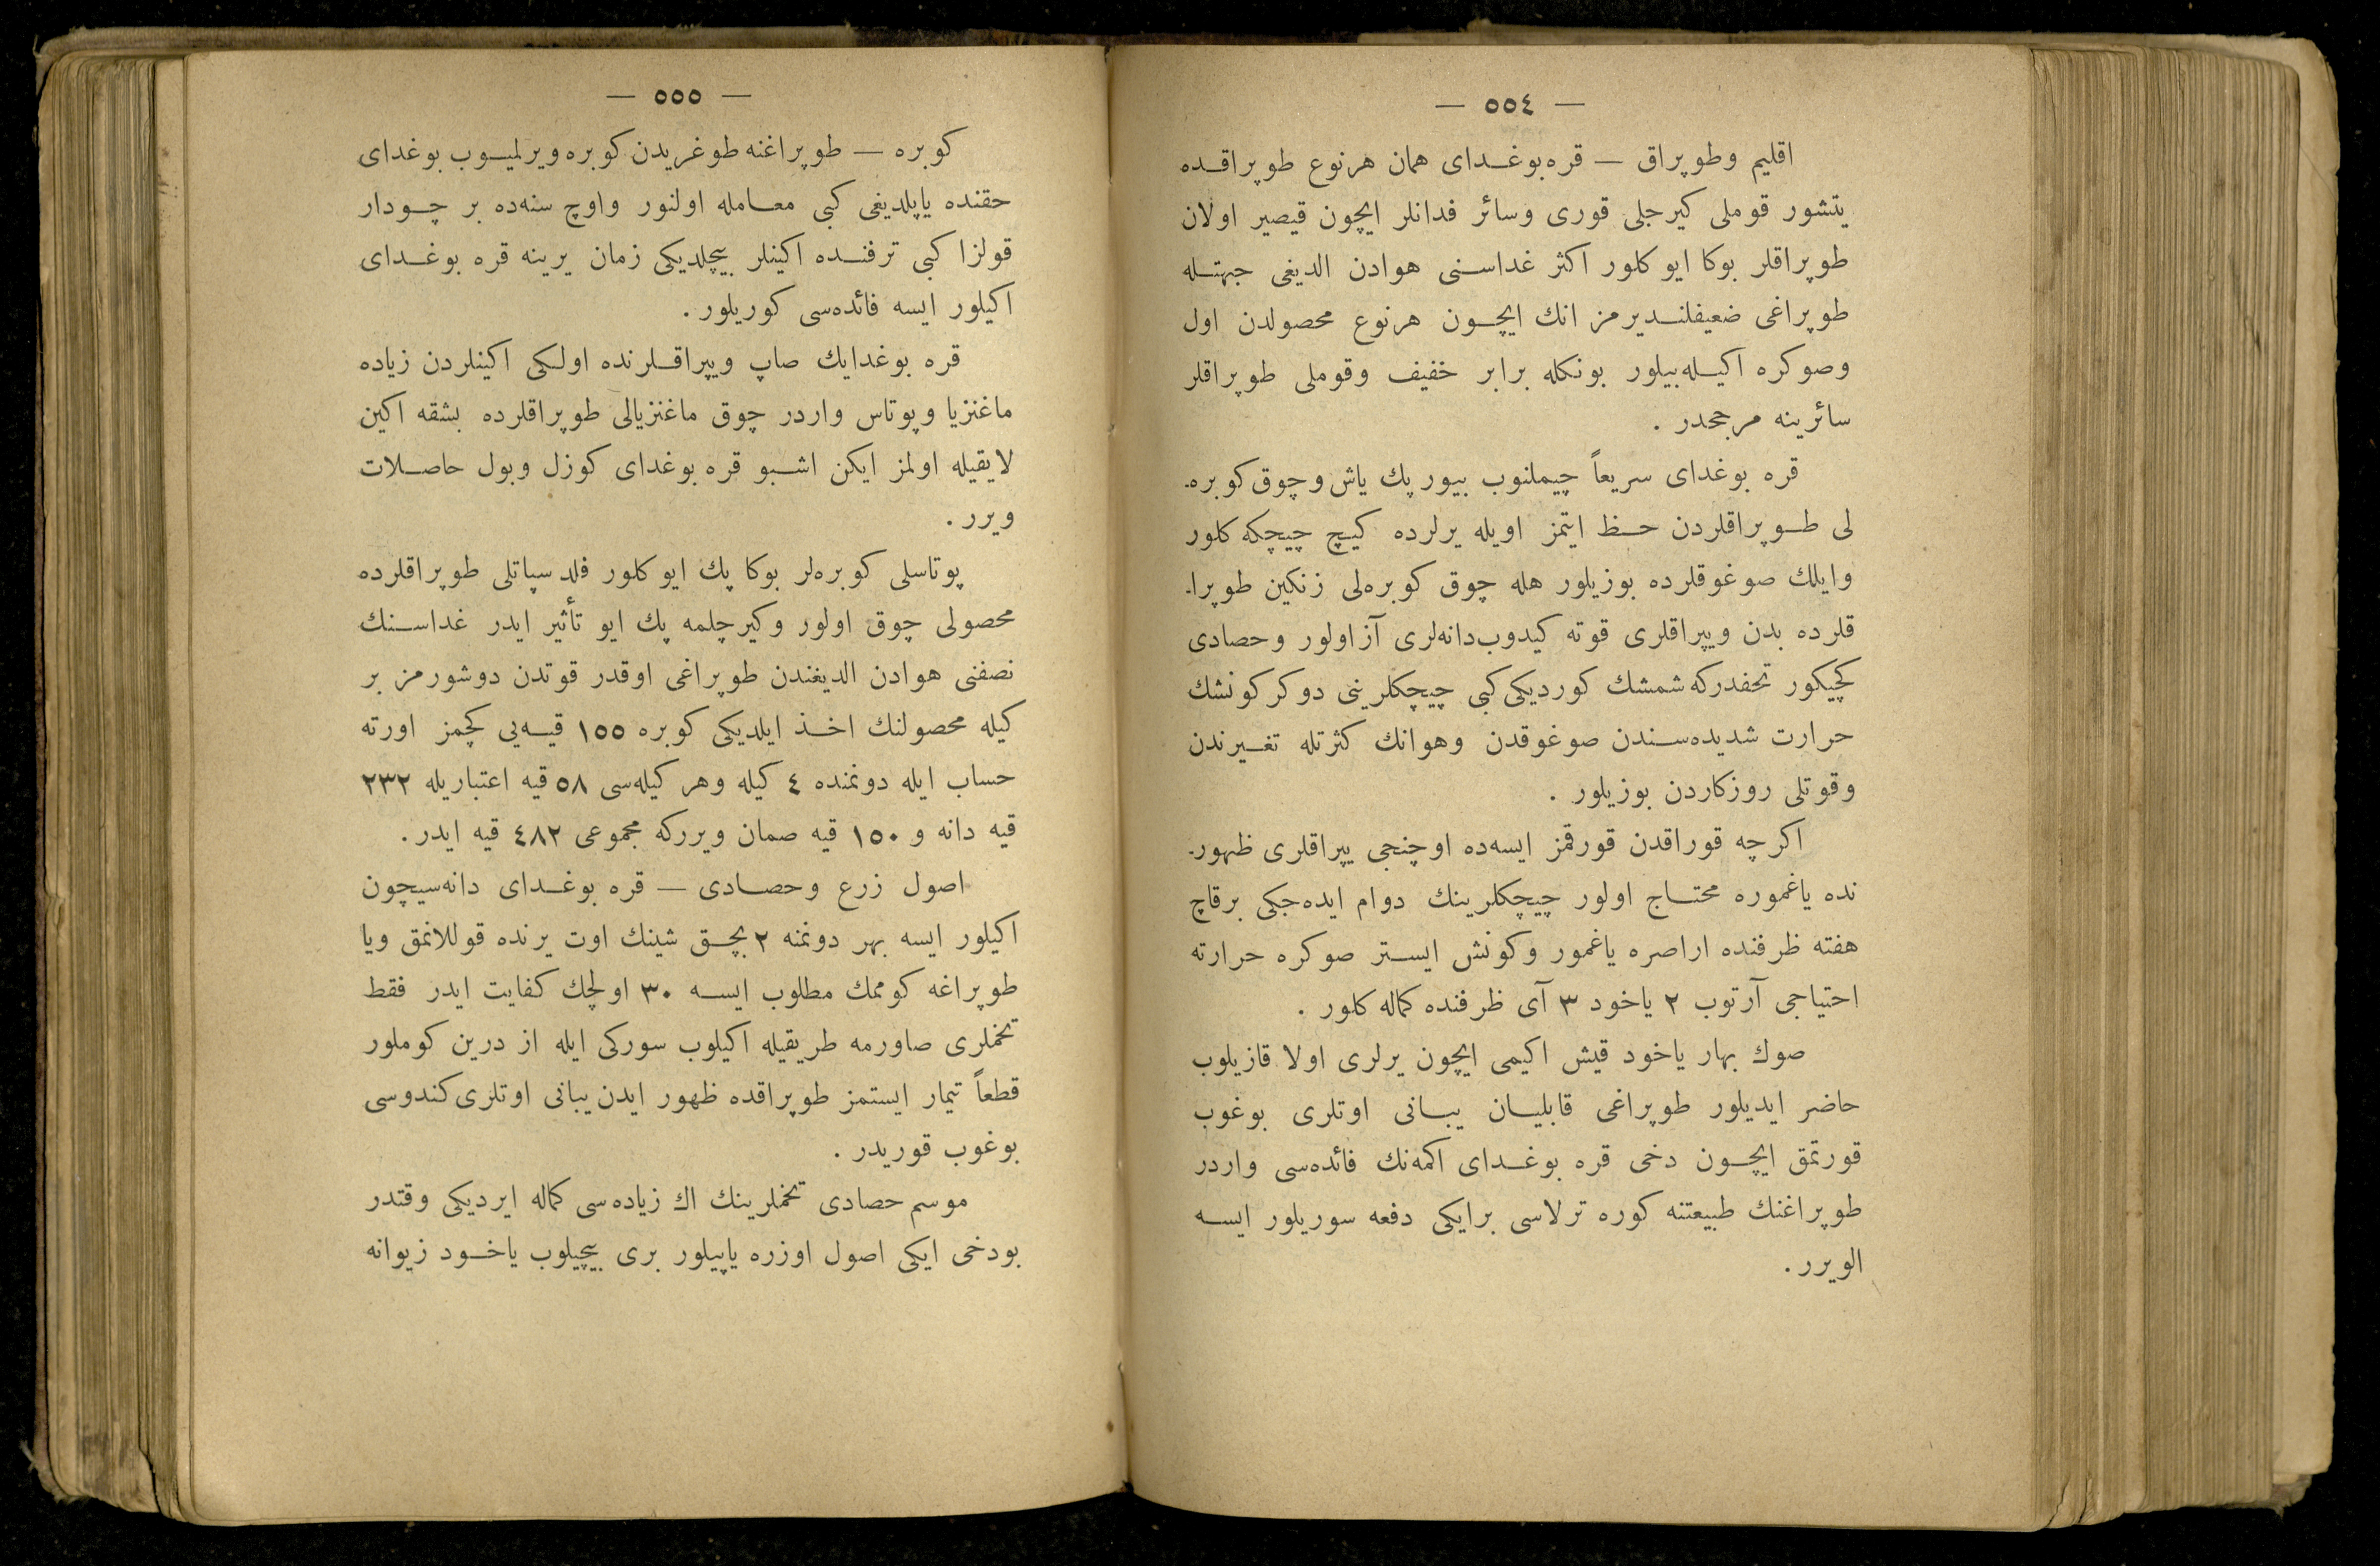 — ٥٥٤ —
اقلیم وطوپراق — قره‌بوغدای همان هرنوع طوپراقده
یتشور قوملی کیرجلی قوری وسائر فدانلر ایچون قیصیر اولان
طوپراقلر بوکا ایو کلور اکثر غداسنی هوادن الدیغی جهتله
طوپراغی ضعیفلندیرمز انك ایچون هرنوع محصولدن اول
وصوکره اکیله‌بیلور بونکله برابر خفیف وقوملی طوپراقلر
سائرینه مرجحدر .
قره بوغدای سریعاً چیملنوب بیور پك یاش وچوق کوبره-
لی طوپراقلردن حظ ایتمز اویله یرلرده کیچ چیچکه کلور
وایلك صوغوقلرده بوزیلور هله چوق کوبره‌لی زنکین طوپرا-
قلرده بدن ویپراقلری قوته کیدوب‌دانه‌لری آزاولور وحصادی
کچیکور تحفدرکه شمشك کوردیکی کبی چیچکلرینی دوکر کونشك
حرارت شدیده‌سندن صوغوقدن وهوانك کثرتله تغیرندن
وقوتلی روزکاردن بوزیلور .
اکرچه قوراقدن قورقمز ایسه‌ده اوچنجی یپراقلری ظهور-
نده یاغموره محتاج اولور چیچکلرینك دوام ایده‌جکی برقاچ
هفته ظرفنده اراصره یاغمور وکونش ایستر صوکره حرارته
احتیاجی آرتوب ٢ یاخود ٣ آی ظرفنده کماله کلور .
صوك بهار یاخود قیش اکیمی ایچون یرلری اولا قازیلوب
حاضر ایدیلور طوپراغی قابلیان یبانی اوتلری بوغوب
قورتمق ایچون دخی قره بوغدای اکمه‌نك فائده‌سی واردر
طوپراغنك طبیعتنه کوره ترلاسی برایکی دفعه سوریلور ایسه
الویرر .
— ٥٥٥ —
کوبره — طوپراغنه طوغریدن کوبره ویرلمیوب بوغدای
حقنده یاپلدیغی کبی معامله اولنور واوچ سنه‌ده بر چودار
قولزا کبی ترفنده اکینلر بیچلدیکی زمان یرینه قره بوغدای
اکیلور ایسه فائده‌سی کوریلور .
قره بوغدایك صاپ ویپراقلرنده اولکی اکینلردن زیاده
ماغنزیا وپوتاس واردر چوق ماغنزیالی طوپراقلرده بشقه اکین
لایقیله اولمز ایکن اشبو قره بوغدای کوزل وبول حاصلات
ویرر .
پوتاسلی کوبره‌لر بوکا پك ایو کلور فلدسپاتلی طوپراقلرده
محصولی چوق اولور وکیرچلمه پك ایو تأثیر ایدر غداسنك
نصفنی هوادن الدیغندن طوپراغی اوقدر قوتدن دوشورمز بر
کیله محصولنك اخذ ایلدیکی کوبره ١٥٥ قیه‌یی کچمز اورته
حساب ایله دونمنده ٤ کیله وهر کیله‌سی ٥٨ قیه اعتباریله ٢٣٢
قیه دانه و ١٥٠ قیه صمان ویررکه مجموعی ٤٨٢ قیه ایدر .
اصول زرع وحصادی — قره بوغدای دانه‌سیچون
اکیلور ایسه بهر دونمنه ٢ بچق شینك اوت یرنده قوللانمق ویا
طوپراغه کوممك مطلوب ایسه ٣٠ اولچك کفایت ایدر فقط
تخملری صاورمه طریقیله اکیلوب سورکی ایله از درین کوملور
قطعاً تیمار ایستمز طوپراقده ظهور ایدن یبانی اوتلری کندوسی
بوغوب قوریدر .
موسم حصادی تخملرینك اك زیاده‌سی کماله ایردیکی وقتدر
بودخی ایکی اصول اوزره یاپیلور بری بیچیلوب یاخود زیوانه